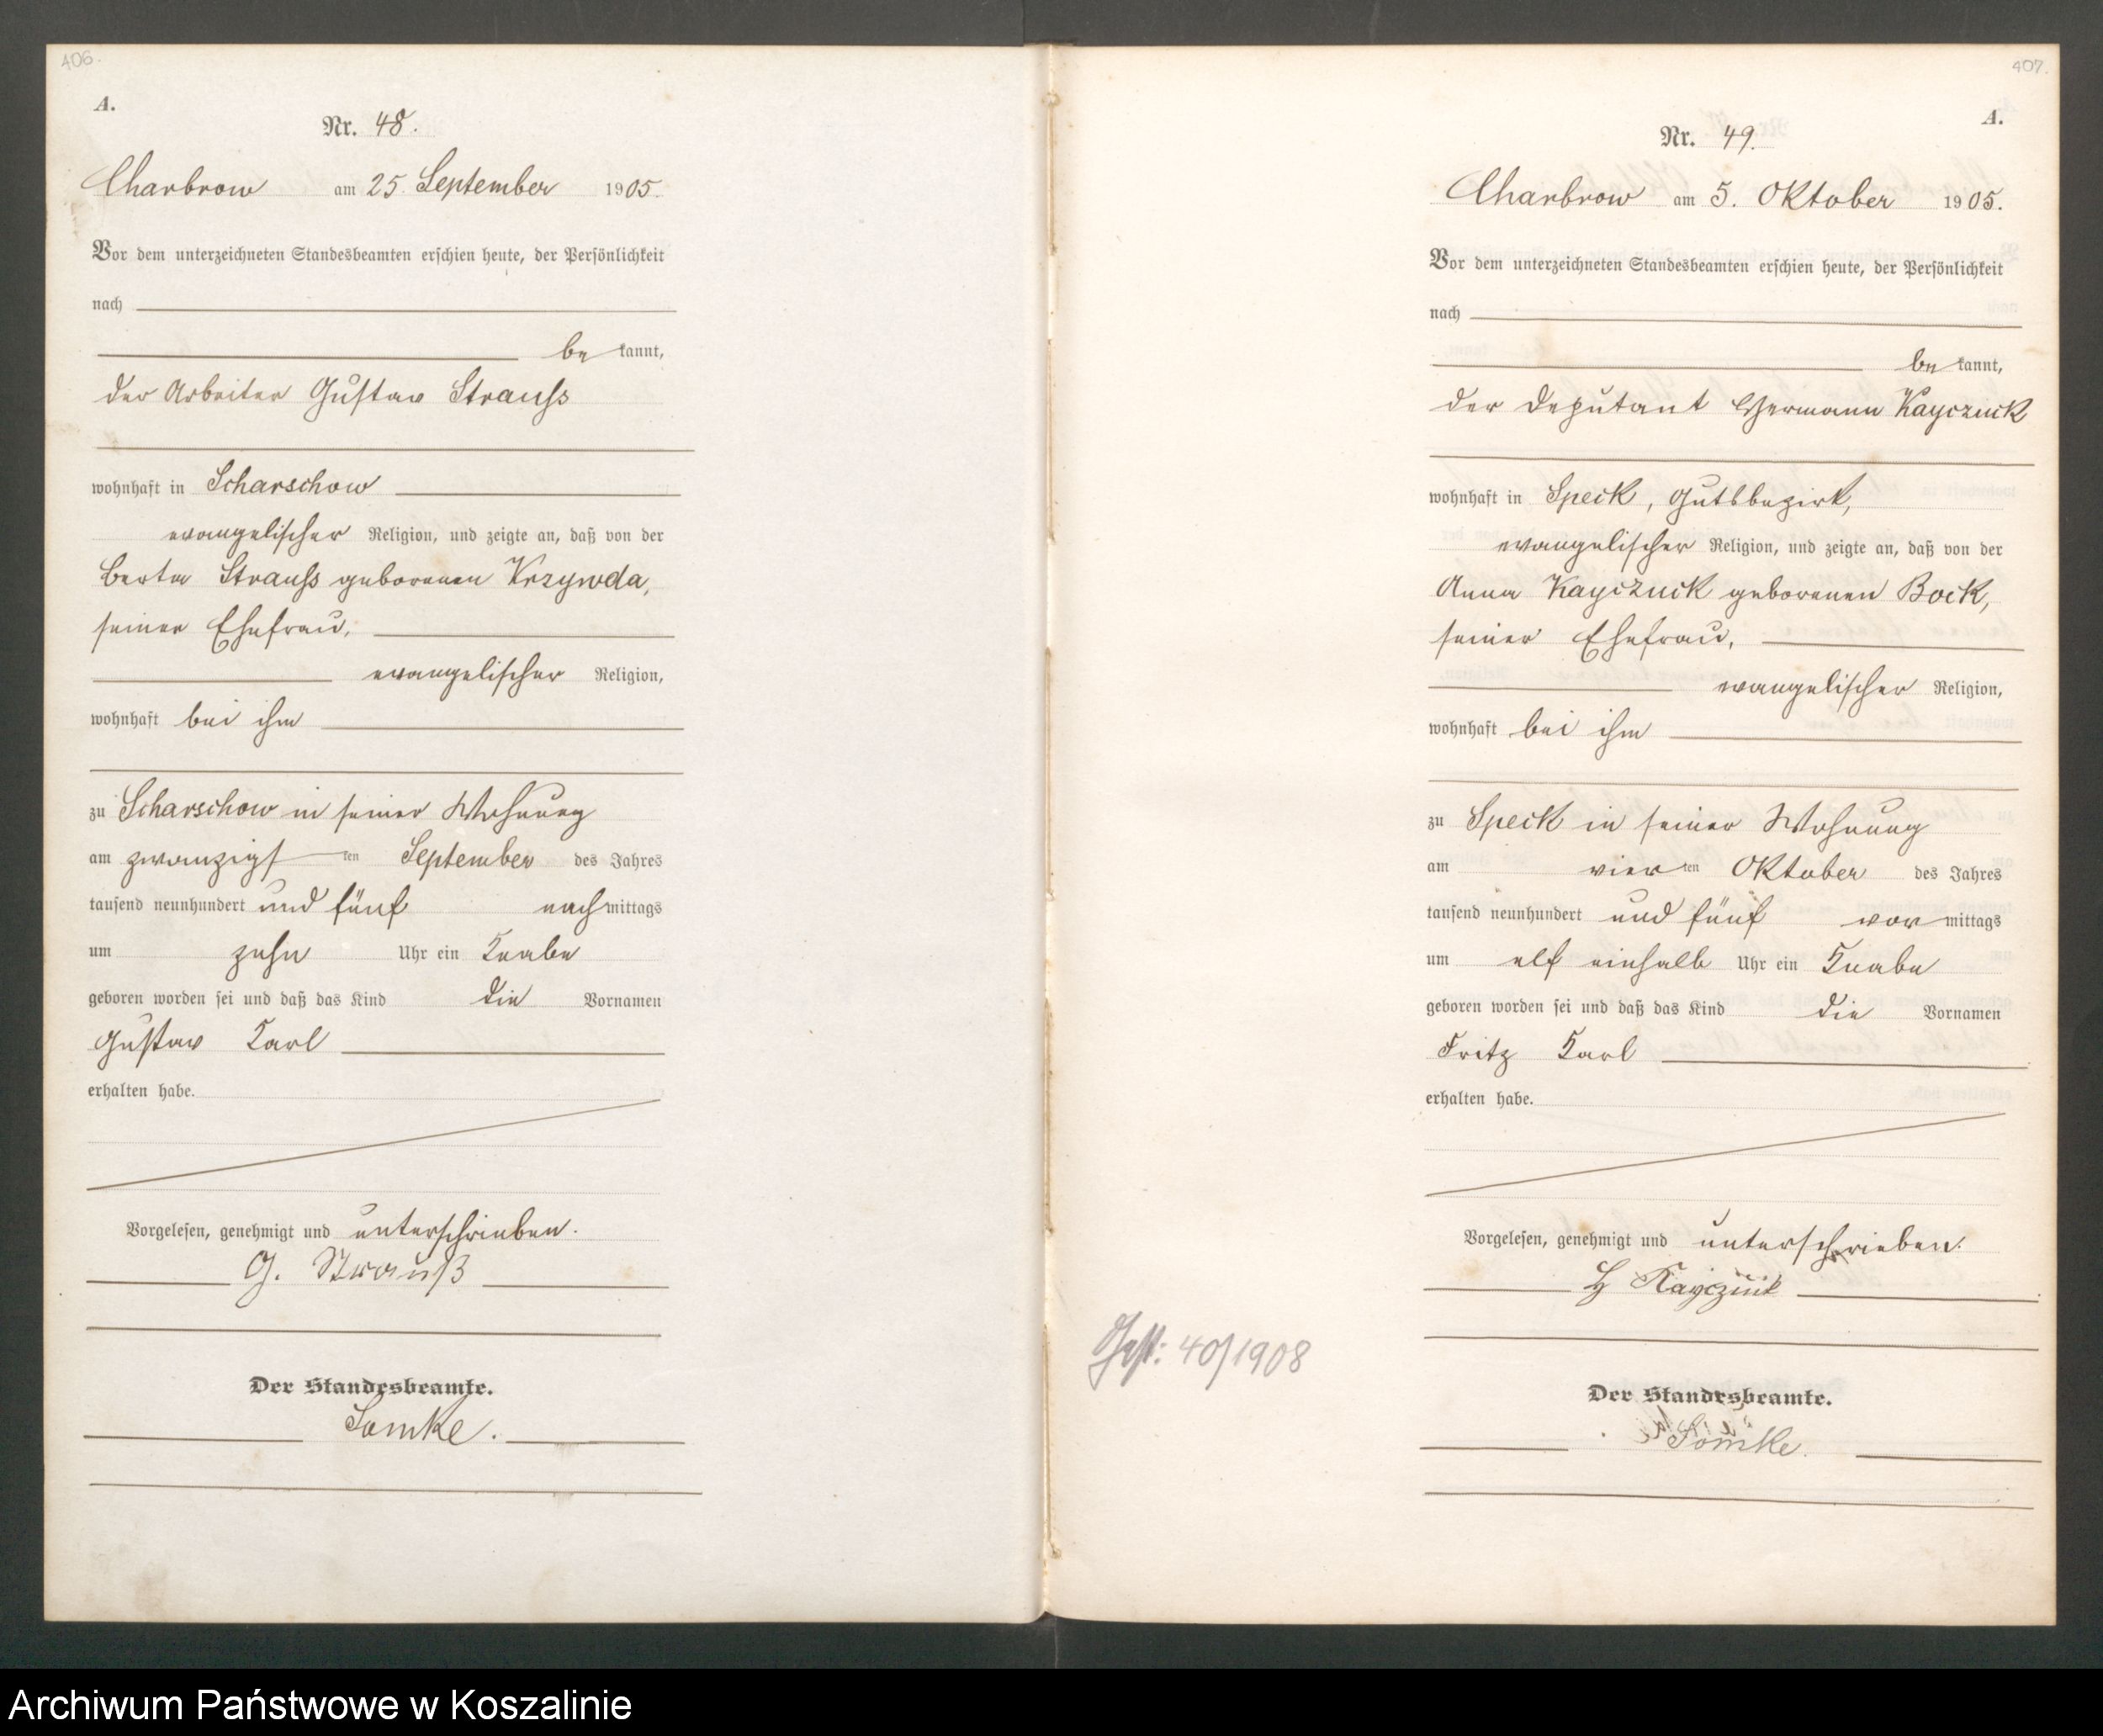 406.
A.
Nr. 48.
Charbrow am 25. September 1905.
Vor dem unterzeichneten Standesbeamten erschien heute, der Persönlichkeit
nach
be kannt,
der Arbeiter Gustav Strauss
wohnhaft in Scharschow
evangelischer Religion, und zeigte an, daß von der
Berta Strauss geborenen Krzywda,
seiner Ehefrau,
evangelischer Religion,
wohnhaft bei ihm
zu Scharschow in seiner Wohnung
am zwanzigsten September des Jahres
tausend neunhundert und fünf nachmittags
um zehn Uhr ein Knabe
geboren worden sei und daß das Kind die Vornamen
Gustav Karl
erhalten habe.
Vorgelesen, genehmigt und unterschrieben.
G. Strauß
Der Standesbeamte.
Somke.
407.
A.
Nr. 49.
Charbrow am 5. Oktober 1905.
Vor dem unterzeichneten Standesbeamten erschien heute, der Persönlichkeit
nach
be kannt,
der Deputant Hermann Kayczuck
wohnhaft in Speck, Gutsbezirk,
evangelischer Religion, und zeigte an, daß von der
Anna Kayczuck geborenen Bock,
seiner Ehefrau,
evangelischer Religion,
wohnhaft bei ihm
zu Speck in seiner Wohnung
am vierten Oktober des Jahres
tausend neunhundert und fünf vormittags
um elf einhalb Uhr ein Knabe
geboren worden sei und daß das Kind die Vornamen
Fritz Karl
erhalten habe.
Vorgelesen, genehmigt und unterschrieben.
H Kayczuck
Gest: 40/1908
Der Standesbeamte.
Somke.
Archiwum Państwowe w Koszalinie